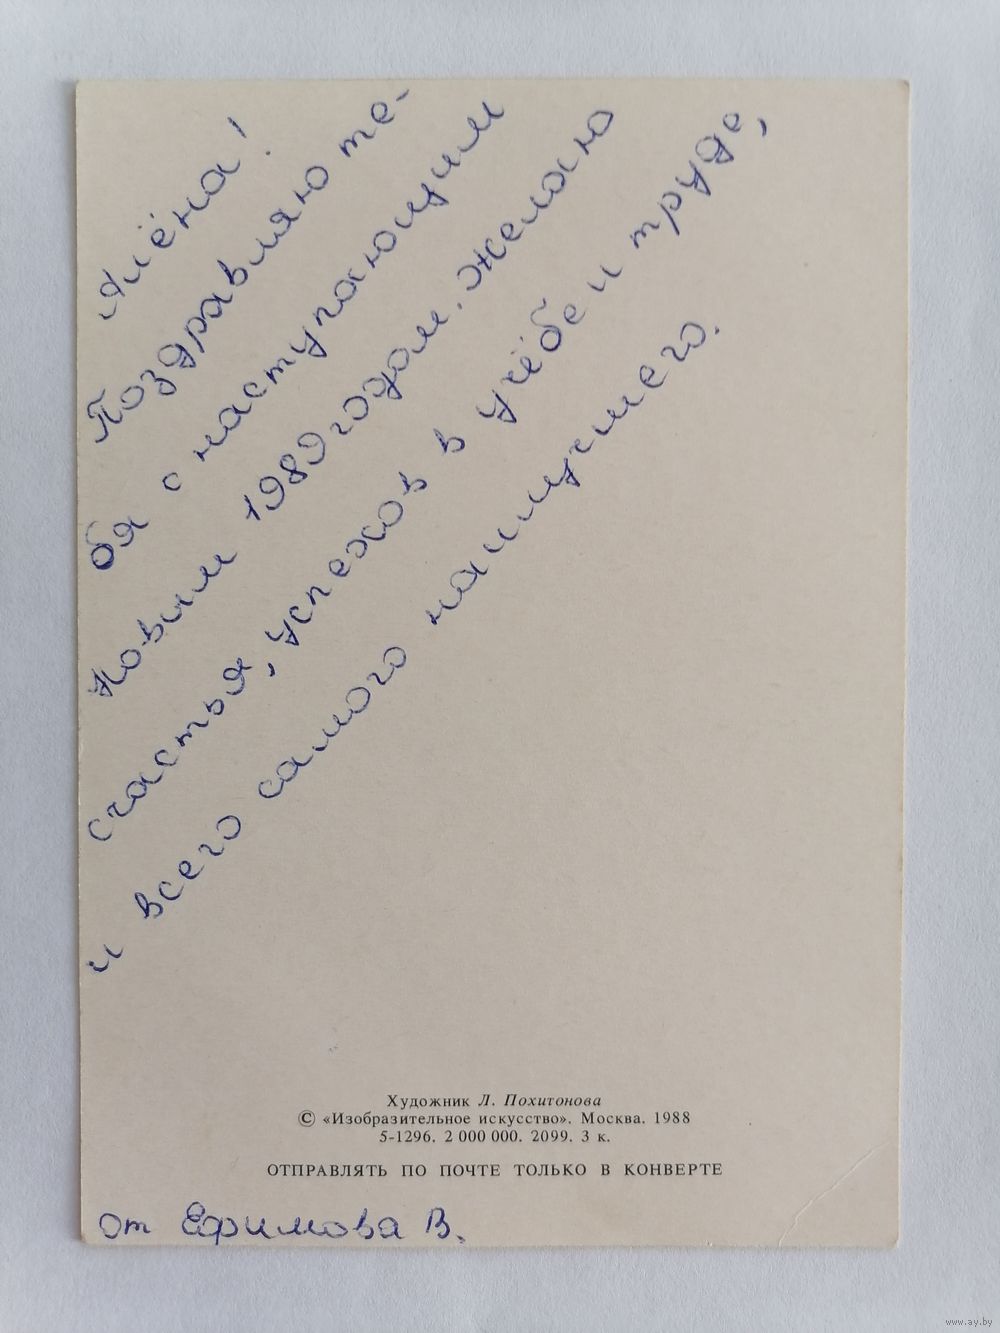 Алёна!
Поздравляю те-
бя с наступающим
Новым 1989 годом. Желаю
счастья, успехов в учёбе и труде,
и всего самого наилучшего.
Художник Л. Похитонова
© «Изобразительное искусство». Москва. 1988
5-1296. 2 000 000. 2099. 3 к.
ОТПРАВЛЯТЬ ПО ПОЧТЕ ТОЛЬКО В КОНВЕРТЕ
от Ефимова В.
www.ay.by